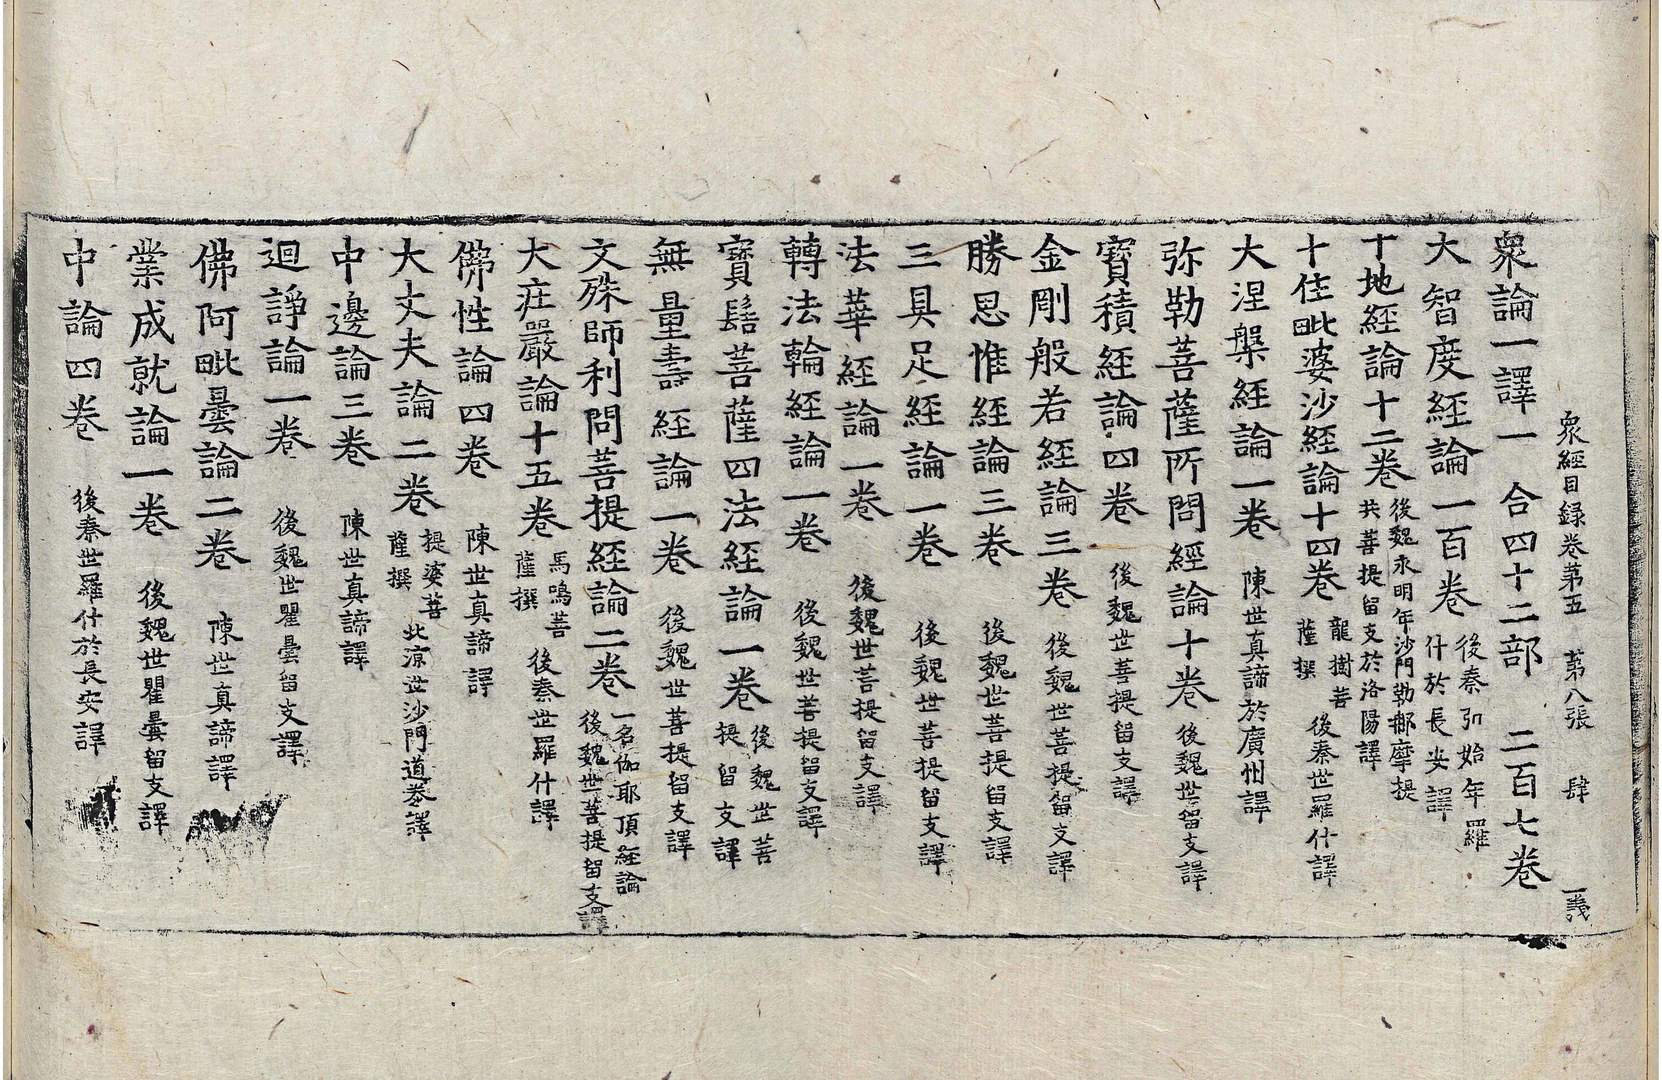 衆經目録卷苐五 苐八張 肆 一義
衆論一譯一 合四十二部 二百七卷
大智度經論一百卷 後秦弘始年羅什於長安譯
十地經論十二卷 後魏永明年沙門勒那摩提共菩提留支於洛陽譯
十住毗婆沙經論十四卷 龍樹菩薩撰 後秦世羅什譯
大涅槃經論一卷 陳世真諦於廣州譯
弥勒菩薩所問經論十卷 後魏世留支譯
寶積經論四卷 後魏世菩提留支譯
金剛般若經論三卷 後魏世菩提留支譯
勝思惟經論三卷 後魏世菩提留支譯
三具足經論一卷 後魏世菩提留支譯
法華經論一卷 後魏世菩提留支譯
轉法輪經論一卷 後魏世菩提留支譯
寶髻菩薩四法經論一卷 後魏世菩提留支譯
無量壽經論一卷 後魏世菩提留支譯
文殊師利問菩提經論二卷 一名伽耶頂經論 後魏世菩提留支譯
大庄嚴論十五卷 馬鳴菩薩撰 後秦世羅什譯
佛性論四卷 陳世真諦譯
大丈夫論二卷 提婆菩薩撰 北涼世沙門道泰譯
中邊論三卷 陳世真諦譯
迴諍論一卷 後魏世瞿曇留支譯
佛阿毗曇論二卷 陳世真諦譯
業成就論一卷 後魏世瞿曇留支譯
中論四卷 後秦世羅什於長安譯